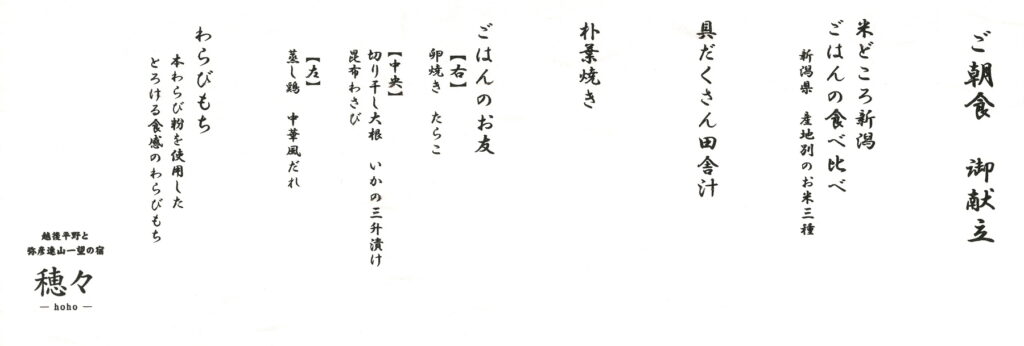 ご朝食　御献立
米どころ新潟
ごはんの食べ比べ
新潟県　産地別のお米三種
具だくさん田舎汁
朴葉焼き
ごはんのお友
【右】
卵焼き　たらこ
【中央】
切り干し大根　いかの三升漬け
昆布わさび
【左】
蒸し鶏　中華風だれ
わらびもち
本わらび粉を使用した
とろける食感のわらびもち
越後平野と
弥彦連山一望の宿
穂々
― hoho ―